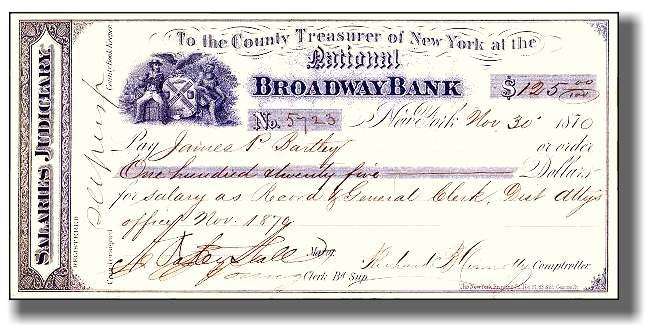 To the County Treasurer of New York at the
National
BROADWAY BANK
$125 00/100
No. 5723
New York Nov. 30 1870
Pay James P. Bartley or order
One hundred & twenty five Dollars
for salary as Record & General Clerk, Dist Atty's
office Nov. 1870
A. Oakey Hall Mayor
Young Clerk Bd Sup.
Richard B Connolly Comptroller
SALARIES JUDICIARY.
REGISTERED
County Book Keeper
Countersigned